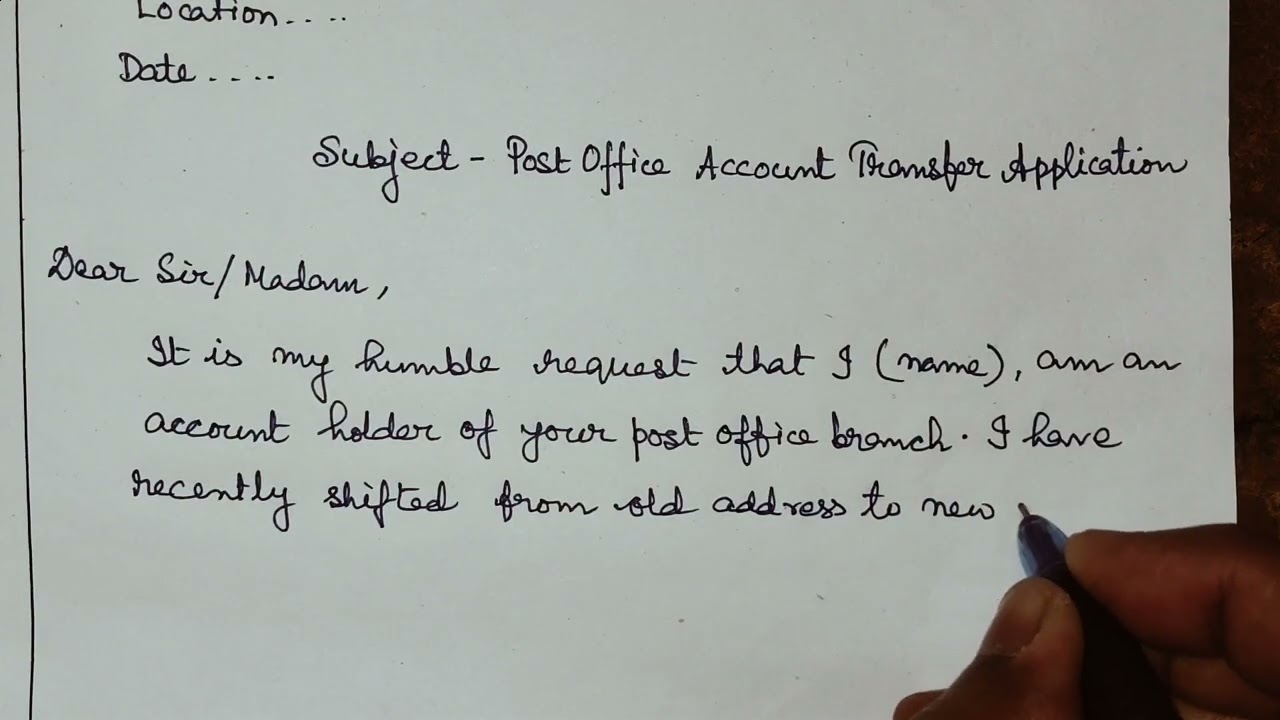 Location....
Date....
Subject - Post Office Account Transfer Application
Dear Sir/Madam,
It is my humble request that I (name), am an
account holder of your post office branch. I have
recently shifted from old address to new